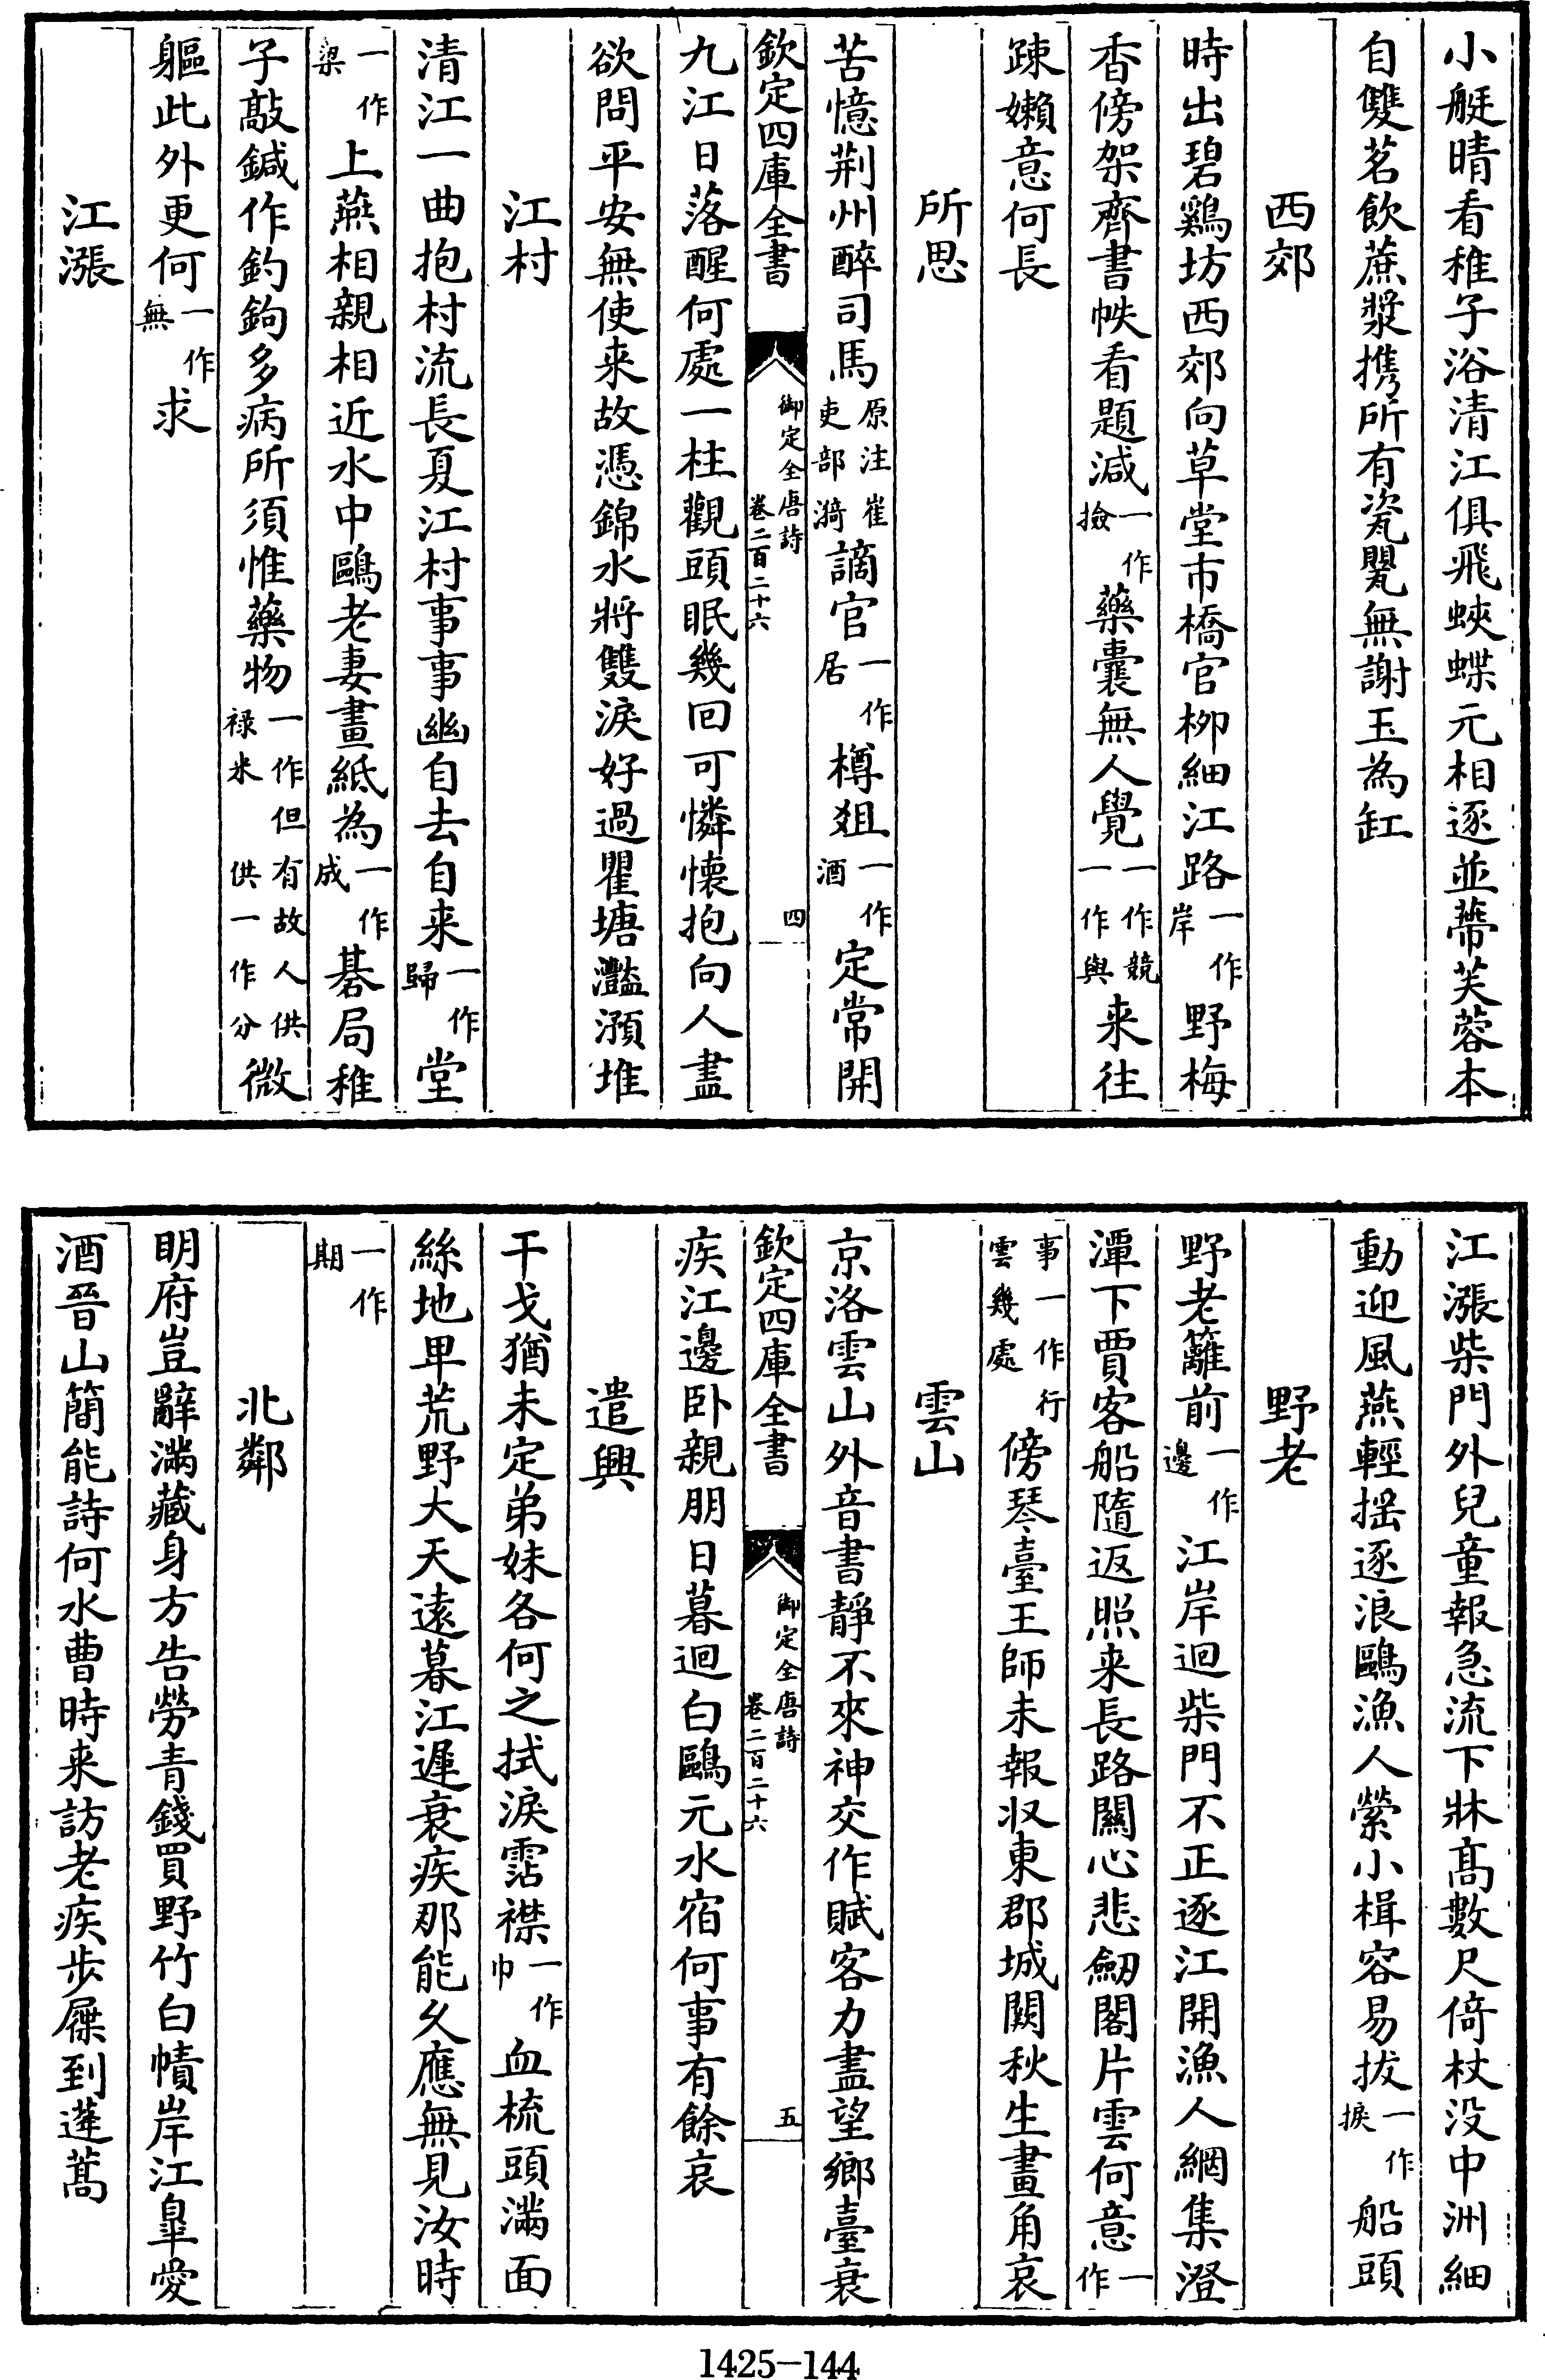 小艇晴看稚子浴清江俱飛蛺蝶元相逐並蔕芙蓉本
自雙茗飲蔗漿携所有瓷甖無謝玉為缸
西郊
時出碧鷄坊西郊向草堂市橋官栁細江路一作岸野梅
香傍架齊書帙看題減一作撿藥囊無人覺一作競一作與来往
踈嬾意何長
所思
苦憶荆州醉司馬原注崔吏部漪謫官一作居樽爼一作酒定常開
欽定四庫全書
御定全唐詩
卷二百二十六
四
九江日落醒何處一柱觀頭眠幾回可憐懐抱向人盡
欲問平安無使来故憑錦水將雙淚好過瞿塘灩澦堆
江村
清江一曲抱村流長夏江村事事幽自去自来一作歸堂
一作梁上燕相親相近水中鷗老妻畫紙為一作成棊局稚
子敲鍼作釣鉤多病所須惟藥物一作但有故人供禄米供一作分微
軀此外更何一作無求
江漲
江漲柴門外兒童報急流下牀髙數尺倚杖没中洲細
動迎風燕輕揺逐浪鷗漁人縈小楫容易拔一作捩船頭
野老
野老籬前一作邊江岸迴柴門不正逐江開漁人網集澄
潭下賈客船隨返照来長路關心悲劒閣片雲何意一作
事一作行雲幾處傍琴臺王師未報收東郡城闕秋生畫角哀
雲山
京洛雲山外音書靜不來神交作賦客力盡望鄉臺衰
欽定四庫全書
御定全唐詩
卷二百二十六
五
疾江邊卧親朋日暮迴白鷗元水宿何事有餘哀
遣興
干戈猶未定弟妹各何之拭淚霑襟一作巾血梳頭滿面
絲地卑荒野大天遠暮江遲衰疾那能久應無見汝時
一作期
北鄰
明府豈辭滿藏身方告勞青錢買野竹白幘岸江臯愛
酒晉山簡能詩何水曹時来訪老疾步屧到蓬蒿
1425-144